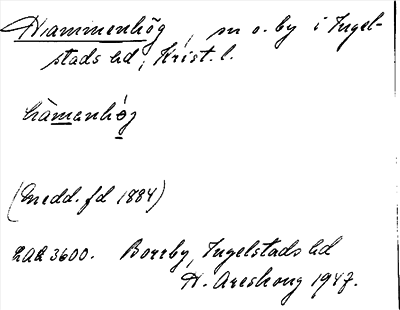 Hammenhög, sn o. by i Ingel-
stads hd, Krist. l.
hàmenhóg
(medd. fd 1884)
LAL 3600. Borrby, Ingelstads hd
H. Areskoug 1947.